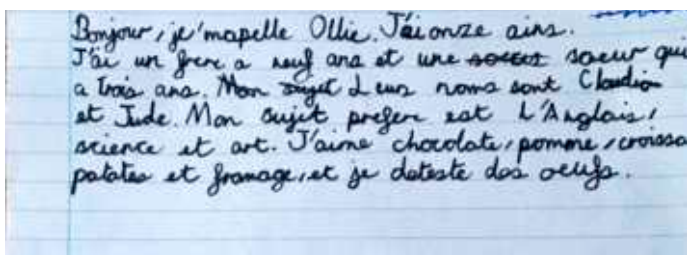 Bonjour, je'mapelle Ollie. J'ai onze ains.
J'ai un frere a neuf ans et une soeur qui
a trois ans. Mon sujet Leurs noms sont Claudia
et Jude. Mon sujet prefere est L'Anglais,
science et art. J'aime chocolate, pomme, croissa
patates et fromage, et je deteste des oeufs.